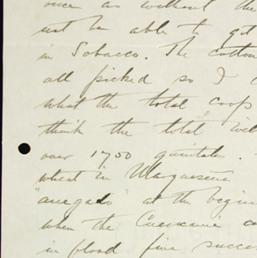 once as without the
not be able to get
in Tobacco. The cotton
all picked so I
what the total crop
think the total
over 1700 quintales.
wheat in
"anegado" at the begin
when the
in flood fine succe